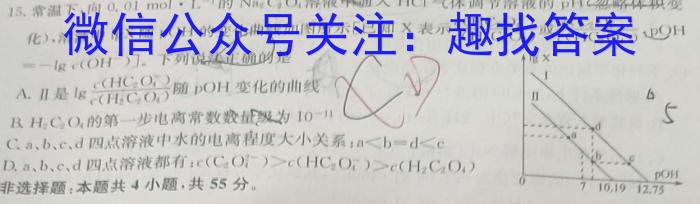 15. 常温下,向 0.01 mol·L⁻¹ 的 Na₂C₂O₄ 溶液中通入 HCl 气体调节溶液的 pH(忽略体积变
化),溶 的变化 X 表示 pOH
微信公众号关注：趣找答案
=-lg c(OH⁻)]。下列说法正确的是
A. Ⅱ是 lg c(HC₂O₄⁻)/c(H₂C₂O₄) 随 pOH 变化的曲线
B. H₂C₂O₄ 的第一步电离常数数量级为 10⁻¹¹
C. a、b、c、d 四点溶液中水的电离程度大小关系:a<b=d<c
D. a、b、c、d 四点溶液都有:c(C₂O₄²⁻)>c(HC₂O₄⁻)>c(H₂C₂O₄)
非选择题:本题共 4 小题,共 55 分。
lg X
Ⅰ
Ⅱ
a
d
b
c
0
7
10.19
12.75
pOH
5